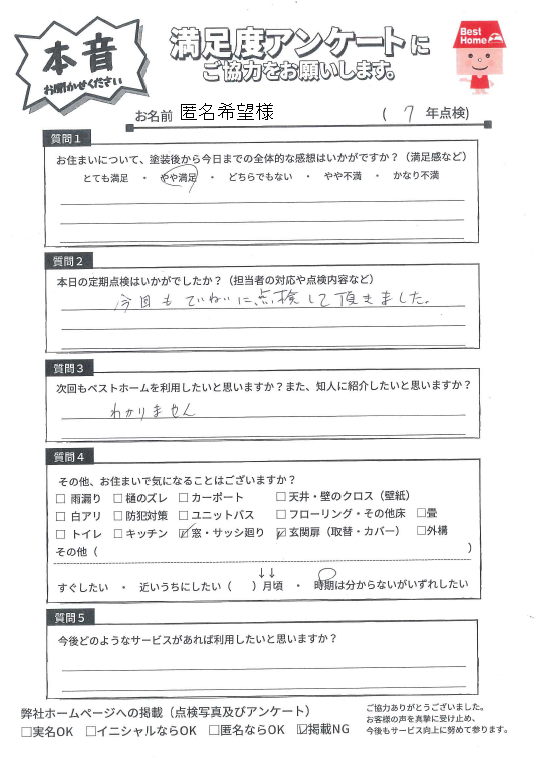 本音
お聞かせください
満足度アンケートに
ご協力をお願いします。
Best Home
お名前 匿名希望様 ( 7 年点検)
質問1
お住まいについて、塗装後から今日までの全体的な感想はいかがですか？（満足感など）
とても満足 ・ やや満足 ・ どちらでもない ・ やや不満 ・ かなり不満
質問2
本日の定期点検はいかがでしたか？（担当者の対応や点検内容など）
今回もていねいに点検して頂きました。
質問3
次回もベストホームを利用したいと思いますか？また、知人に紹介したいと思いますか？
わかりません
質問4
その他、お住まいで気になることはございますか？
□ 雨漏り □ 樋のズレ □ カーポート □ 天井・壁のクロス（壁紙）
□ 白アリ □ 防犯対策 □ ユニットバス □ フローリング・その他床 □畳
□ トイレ □ キッチン ☑ 窓・サッシ廻り ☑ 玄関扉（取替・カバー） □外構
その他（ ）
↓↓
すぐしたい ・ 近いうちにしたい（ ）月頃 ・ 時期は分からないがいずれしたい
質問5
今後どのようなサービスがあれば利用したいと思いますか？
弊社ホームページへの掲載（点検写真及びアンケート）
□実名OK □イニシャルならOK □匿名ならOK ☑掲載NG
ご協力ありがとうございました。
お客様の声を真摯に受け止め、
今後もサービス向上に努めて参ります。